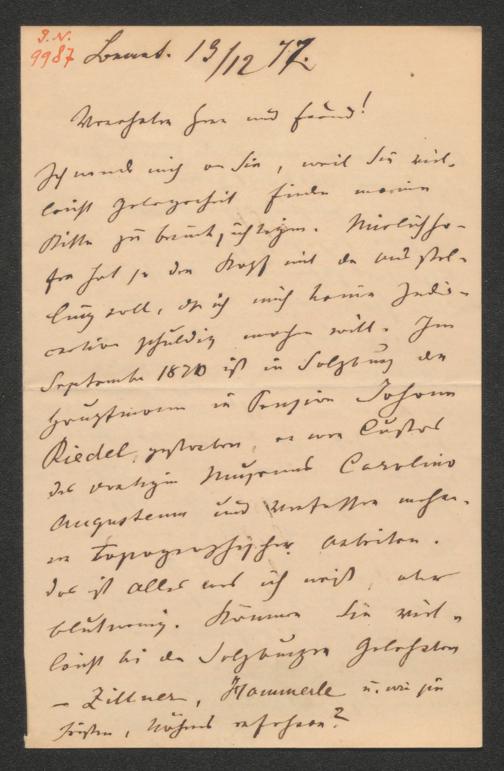 I. N.
9987
Sonnt. 13/12 77.
Verehrter Herr und Freund!
Ich wende mich an Sie, weil Sie viel-
leicht Gelegenheit finden meine
Bitte zu berücksichtigen.
hat ja den Kopf mit der Ausstel-
lung voll, daß ich mich keiner Indis-
cretion schuldig machen will. Im
September 1870 ist in Salzburg der
Hauptmann in Pension Johann
Riedel gestorben, er war Custos
des dortigen Museums Carolino
Augusteum und Verfasser mehre-
re topographischer Arbeiten.
Das ist alles was ich weiß, aber
blutwenig. Können Sie viel-
leicht bei den Salzburger Gelehrten
– Zillner, Hammerle u. wie sie
heißen, Näheres erfahren?